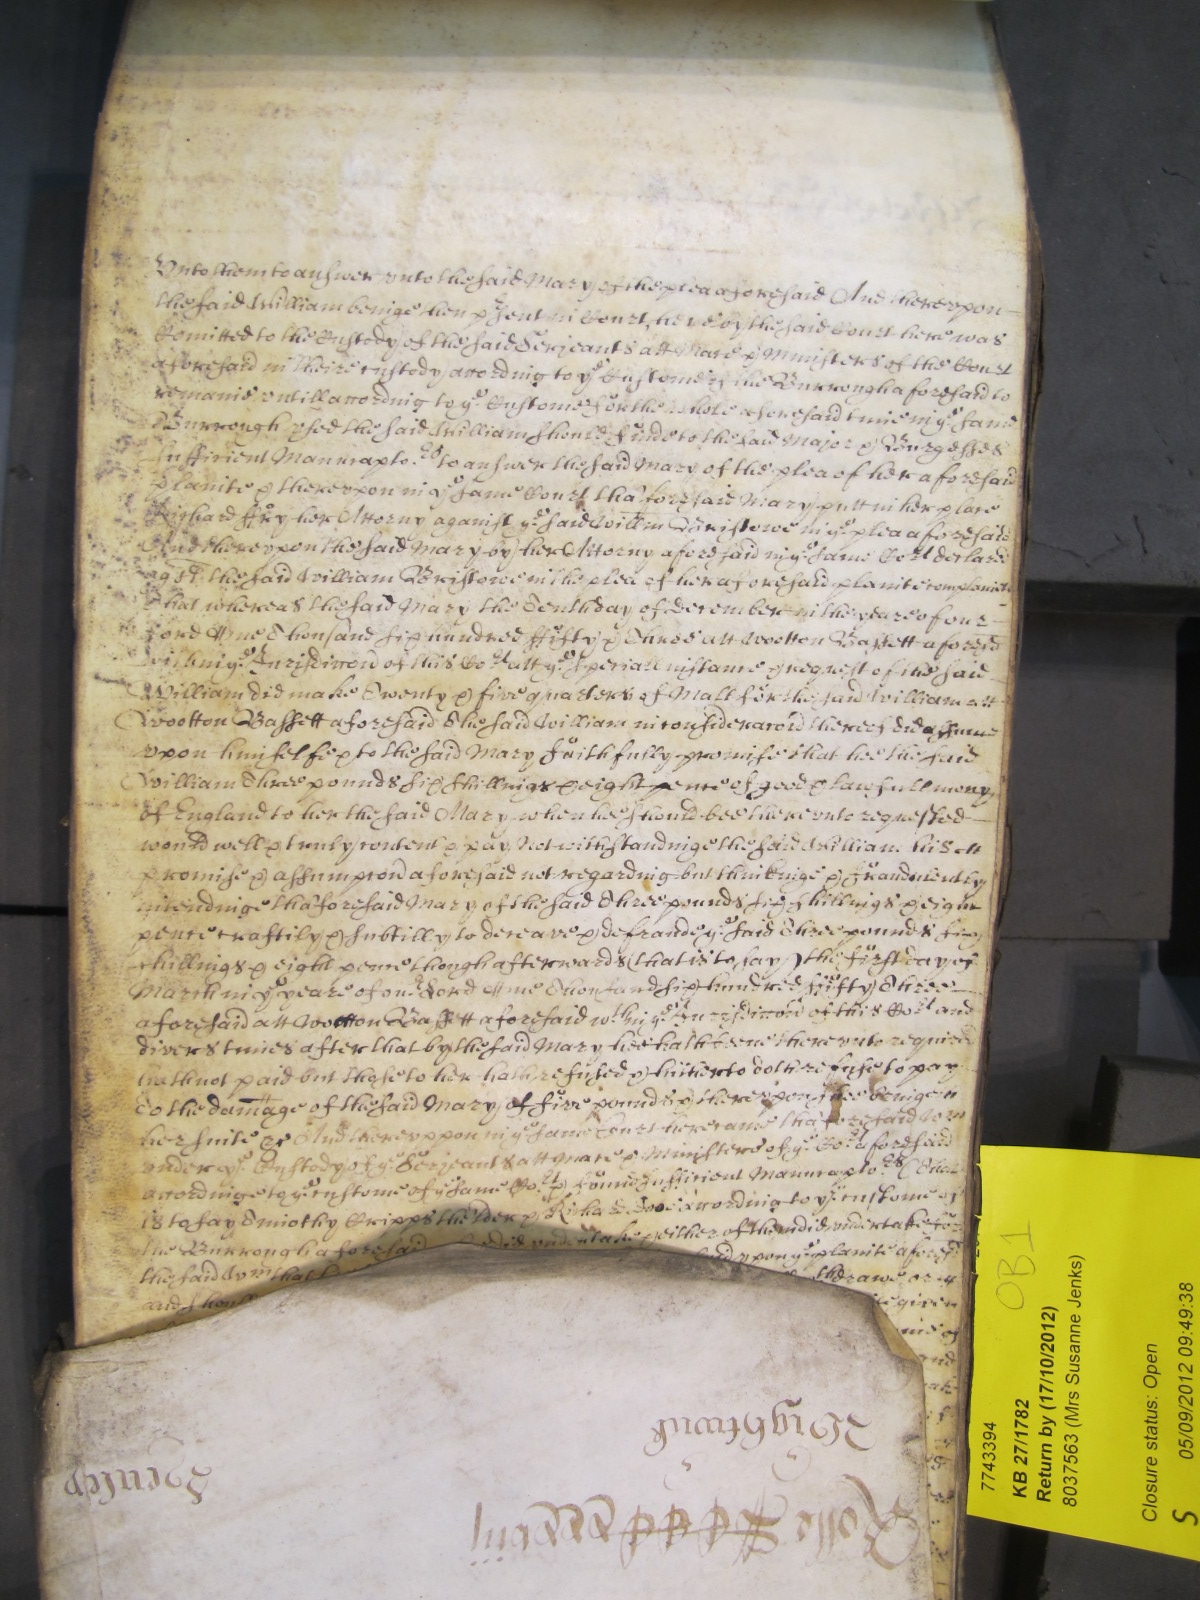 Unto them to answer unto the said Mary of the plea aforesaid And thereupon
the said William beinge then p'sent in Court here by the said Court here was
Comitted to the Custody of the said Serjeants att Mace & Ministers of the Court
aforesaid in theire custody according to ye Custome of the Burrough aforesaid to
remaine untill according to ye Custome for the whole aforesaid time in ye same
Burrough used the said William should finde to the said Major & Burgesses
sufficient Manucaptors to answer the said Mary of the plea of her aforesaid
plainte & thereupon in ye same Court th'aforesaid Mary putt in her place
Richard ffry her Attorny against ye said Willm Bristowe in ye plea aforesaid
And thereupon the said Mary by her Attorny aforesaid in ye same Cort declared
agst the said William Bristowe in the plea of her aforesaid plainte complaininge
That whereas the said Mary the Tenth day of december in the yeare of our
Lord One Thousand six hundred ffifty & Three att Wootton Bassett aforesd
within ye Jurisdiccon of this Cort att ye speciall instance & request of the said
William did make Twenty & five quarters of Malt for the said William att
Wootton Bassett aforesaid The said William in consideracon thereof did assume
upon himselfe & to the said Mary faithfully promise that hee the said
William Three pounds six shillings & eight pence of good & lawfull mony
of England to her the said Mary when he should bee thereunto requested
would well & truly content & pay Notwithstandinge the said William his
promise & assumpcon aforesaid not regarding but thinkinge & fraudulently
intendinge th'aforesaid Mary of the said Three pounds six shillings & eight
pence craftily & subtilly to deceave & defraude ye said Three pounds six
shillings & eight pence though afterwards (that is to say) the first day of
March in ye yeare of our Lord One Thousand six hundred ffifty Three
aforesaid att Wootton Bassett aforesaid wthin ye Jurisdiccon of this Cort and
divers times after that by the said Mary hee hath beene thereunto required
hath not paid but those to her hath refused & hitherto doth refuse to pay
To the damage of the said Mary of five pounds & thereupon shee bringeth
her suite &c And thereuppon in ye same Court here came th'aforesaid Wm
under ye Custody of ye Serjeants att Mace & Ministers of ye Cort aforesaid
accordinge to ye custome of ye same Cort & found sufficient Manucaptors That
is to say Timothy Cripps the elder & Richard according to ye custome of
the Burrough aforesaid did undertake & either of them did undertake for
the said Wm that upon ye plainte aforesd
and should
Wightwick
Henley
Rolle
7743394
KB 27/1782
Return by (17/10/2012)
8037563 (Mrs Susanne Jenks)
OB1
Closure status: Open
05/09/2012 09:49:38
S